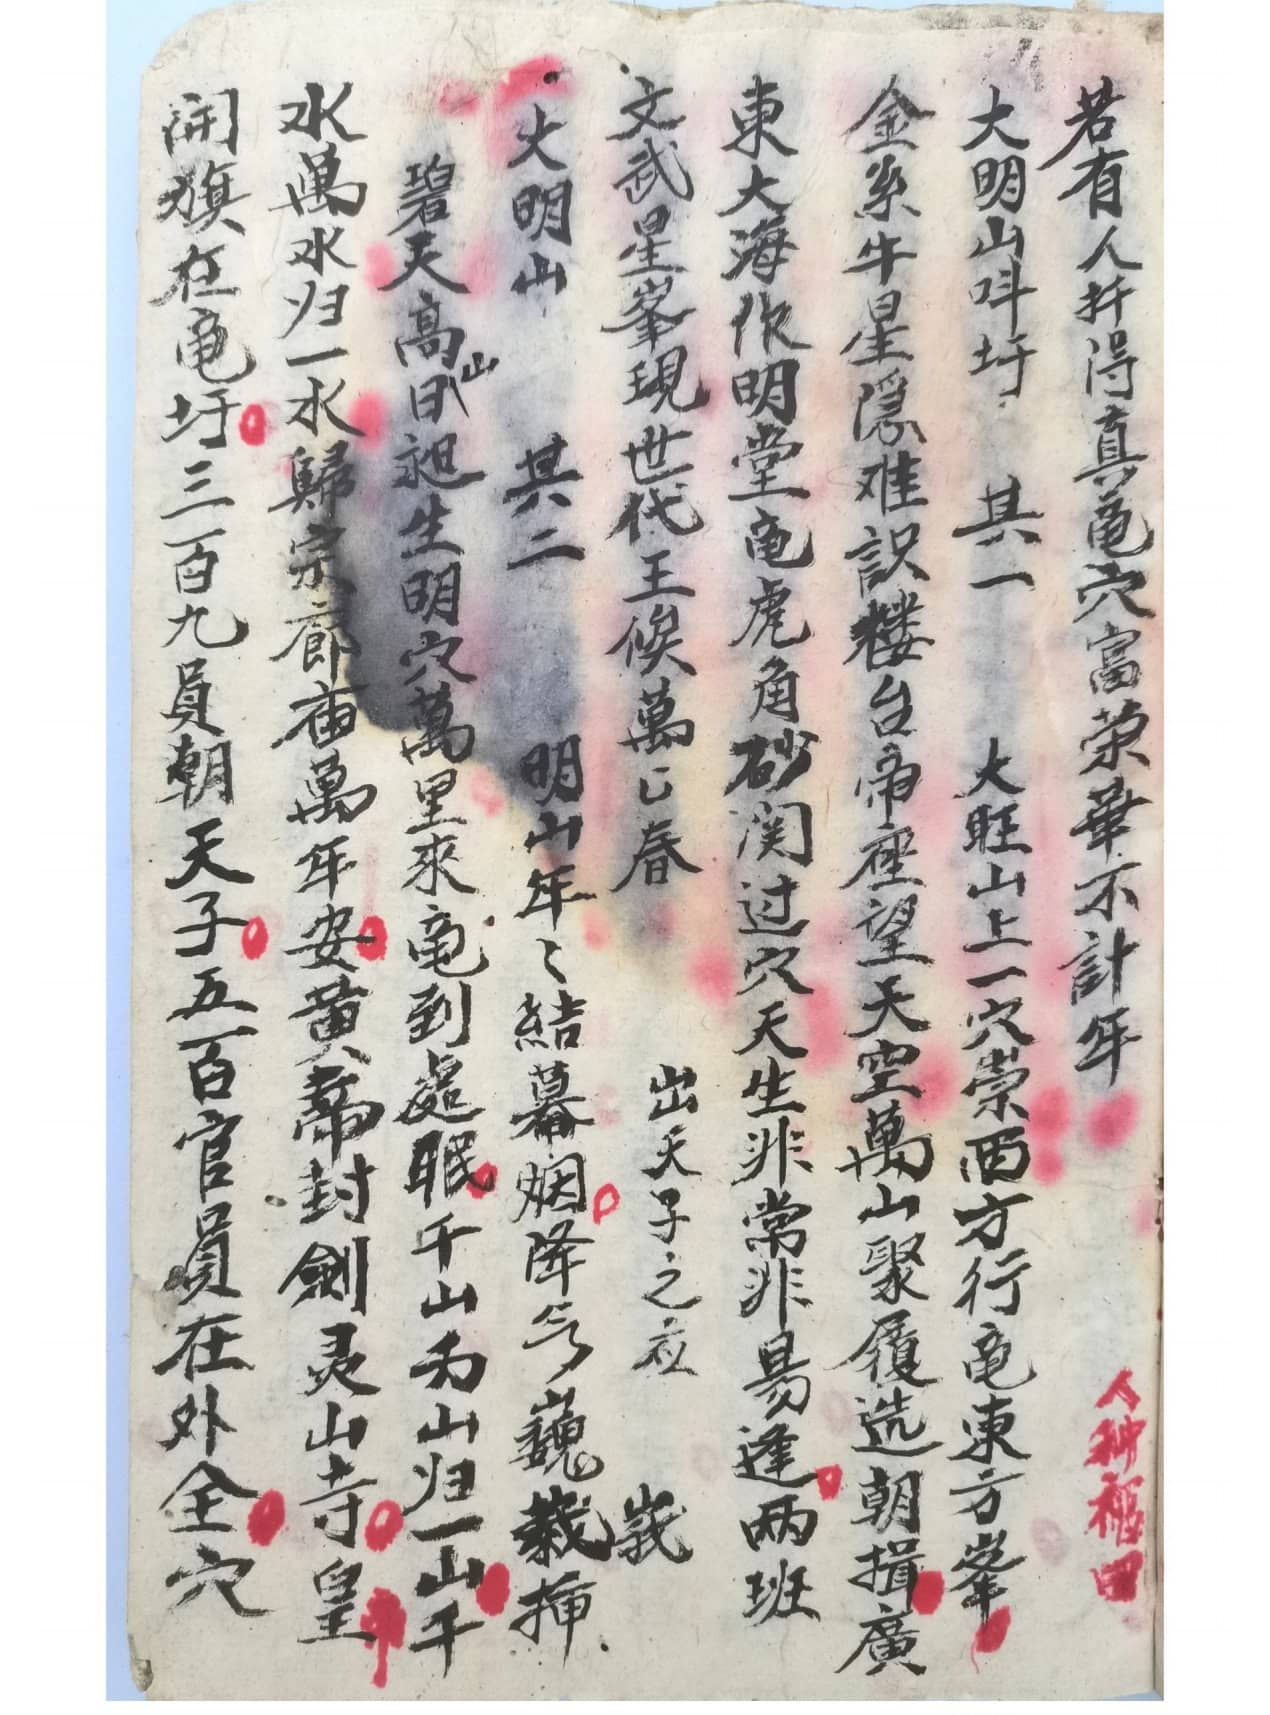 若有人扦得真竜穴富荣華不計年
人种福田
大明山呌圩 其一 大旺山上一穴崇西方行竜東方峯
金系牛星隱难識楼台帝座望天空萬山聚履造朝揖廣
東大海作明堂竜虎角砂関过穴天生非常非易逢两班
文武星峯現世代王侯萬匕春 出天子之应 峩
大明山 其二 明山年〻結暮烟降气巍峩挿
碧天高山日昶生明穴萬里來竜到處眠千山万山归一山千
水萬水归一水歸宗廊庙萬年安黃帝封劍灵山寺皇帝
開旗在竜圩三百九員朝天子五百官員在外全穴